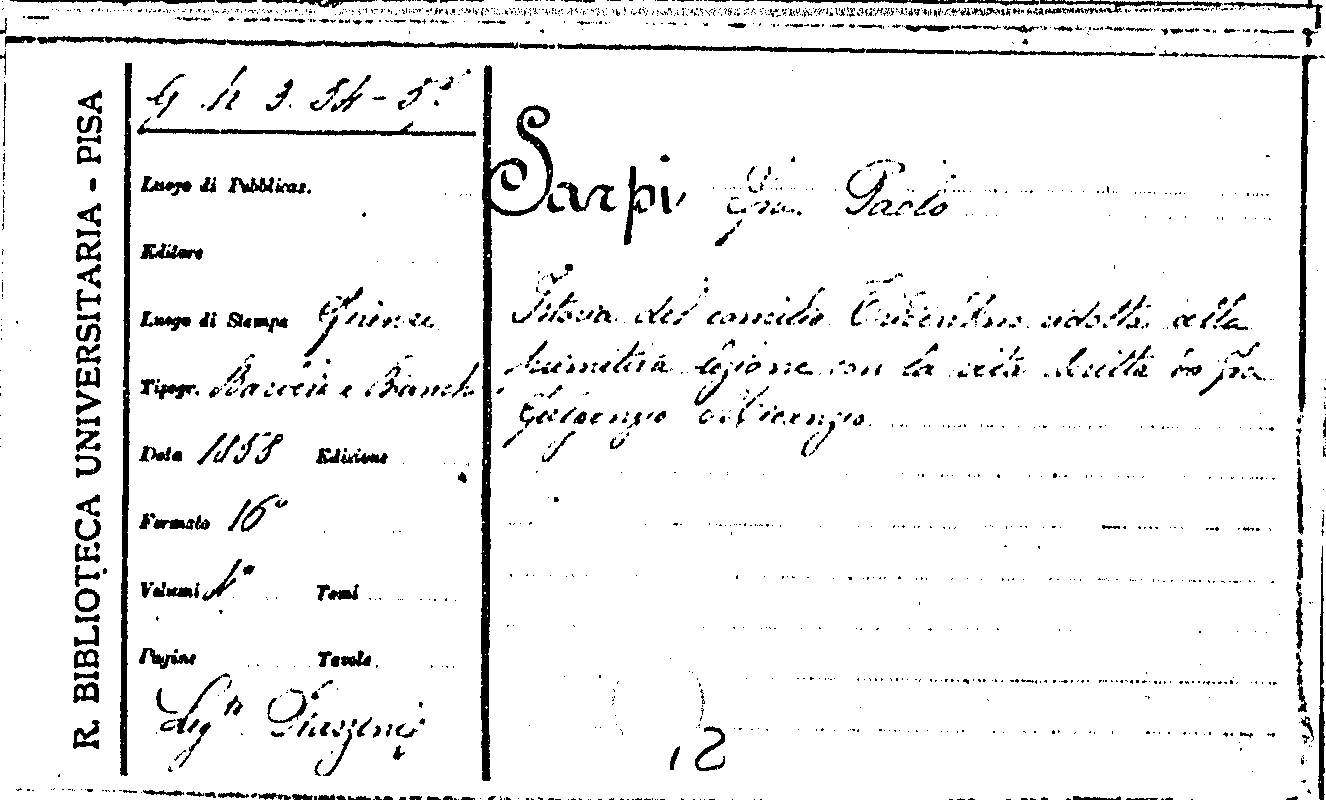 R. BIBLIOTECA UNIVERSITARIA - PISA
G h 3. 54-5
Luogo di Pubblicaz.
Editore
Luogo di Stampa Firenze
Tipogr. Barbèra e Bianchi
Data 1858 Edizione
Formato 16°
Volumi 4° Tomi
Pagine Tavole
Leg.
Sarpi Fra Paolo
Istoria del concilio Tridentino ridotta alla
primitiva lezione con la vita scritta da Fra
Fulgenzio Micanzio
12